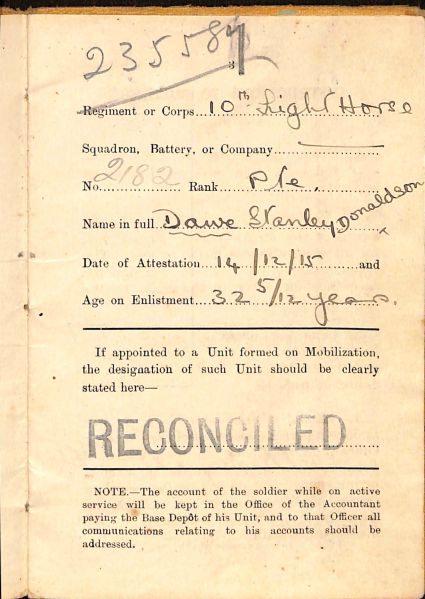 235584
3
Regiment or Corps...10th Light Horse
Squadron, Battery, or Company
No. 2182 Rank Pte.
Name in full Dawe Stanley Donaldson
Date of Attestation 14/12/15 and
Age on Enlistment 32 5/12 years.
If appointed to a Unit formed on Mobilization,
the designation of such Unit should be clearly
stated here—
RECONCILED
NOTE.—The account of the soldier while on active
service will be kept in the Office of the Accountant
paying the Base Depôt of his Unit, and to that Officer all
communications relating to his accounts should be
addressed.